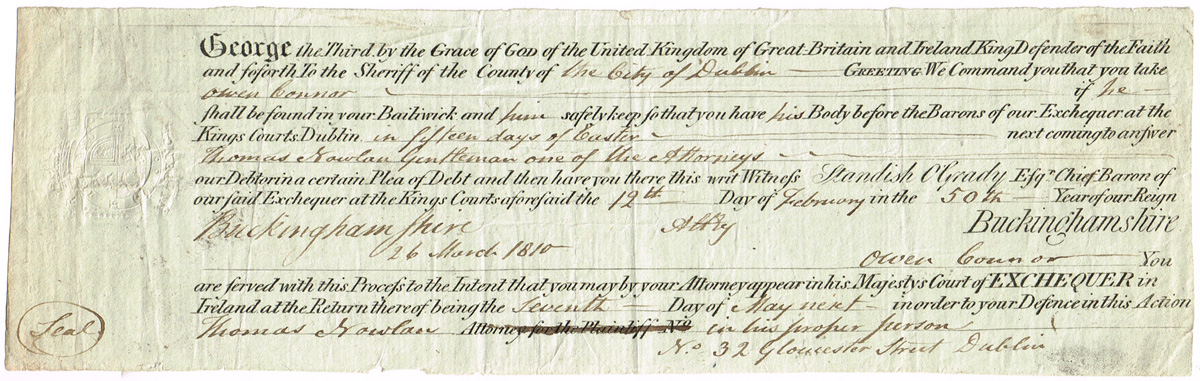 George the Third by the Grace of GOD of the United Kingdom of Great-Britain and Ireland King Defender of the Faith
and soforth To the Sheriff of the County of the City of Dublin GREETING We Command you that you take
Owen Connor if he
shall be found in your Bailiwick and him safely keep so that you have his Body before the Barons of our Exchequer at the
Kings Courts Dublin in fifteen days of Easter next coming to answer
Thomas Nowlan Gentleman one of the Attorneys
our Debtor in a certain Plea of Debt and then have you there this writ Witness Standish O'Grady Esqr. Chief Baron of
our said Exchequer at the Kings Courts aforesaid the 12th Day of February in the 50th Year of our Reign
Buckinghamshire Atty Buckinghamshire
26 March 1810 Owen Connor You
are served with this Process to the Intent that you may by your Attorney appear in his Majestys Court of EXCHEQUER in
Ireland at the Return thereof being the Seventh Day of May next in order to your Defence in this Action
Seal
Thomas Nowlan Attorney for the Plaintiff No in his proper person
No. 32 Gloucester Street Dublin